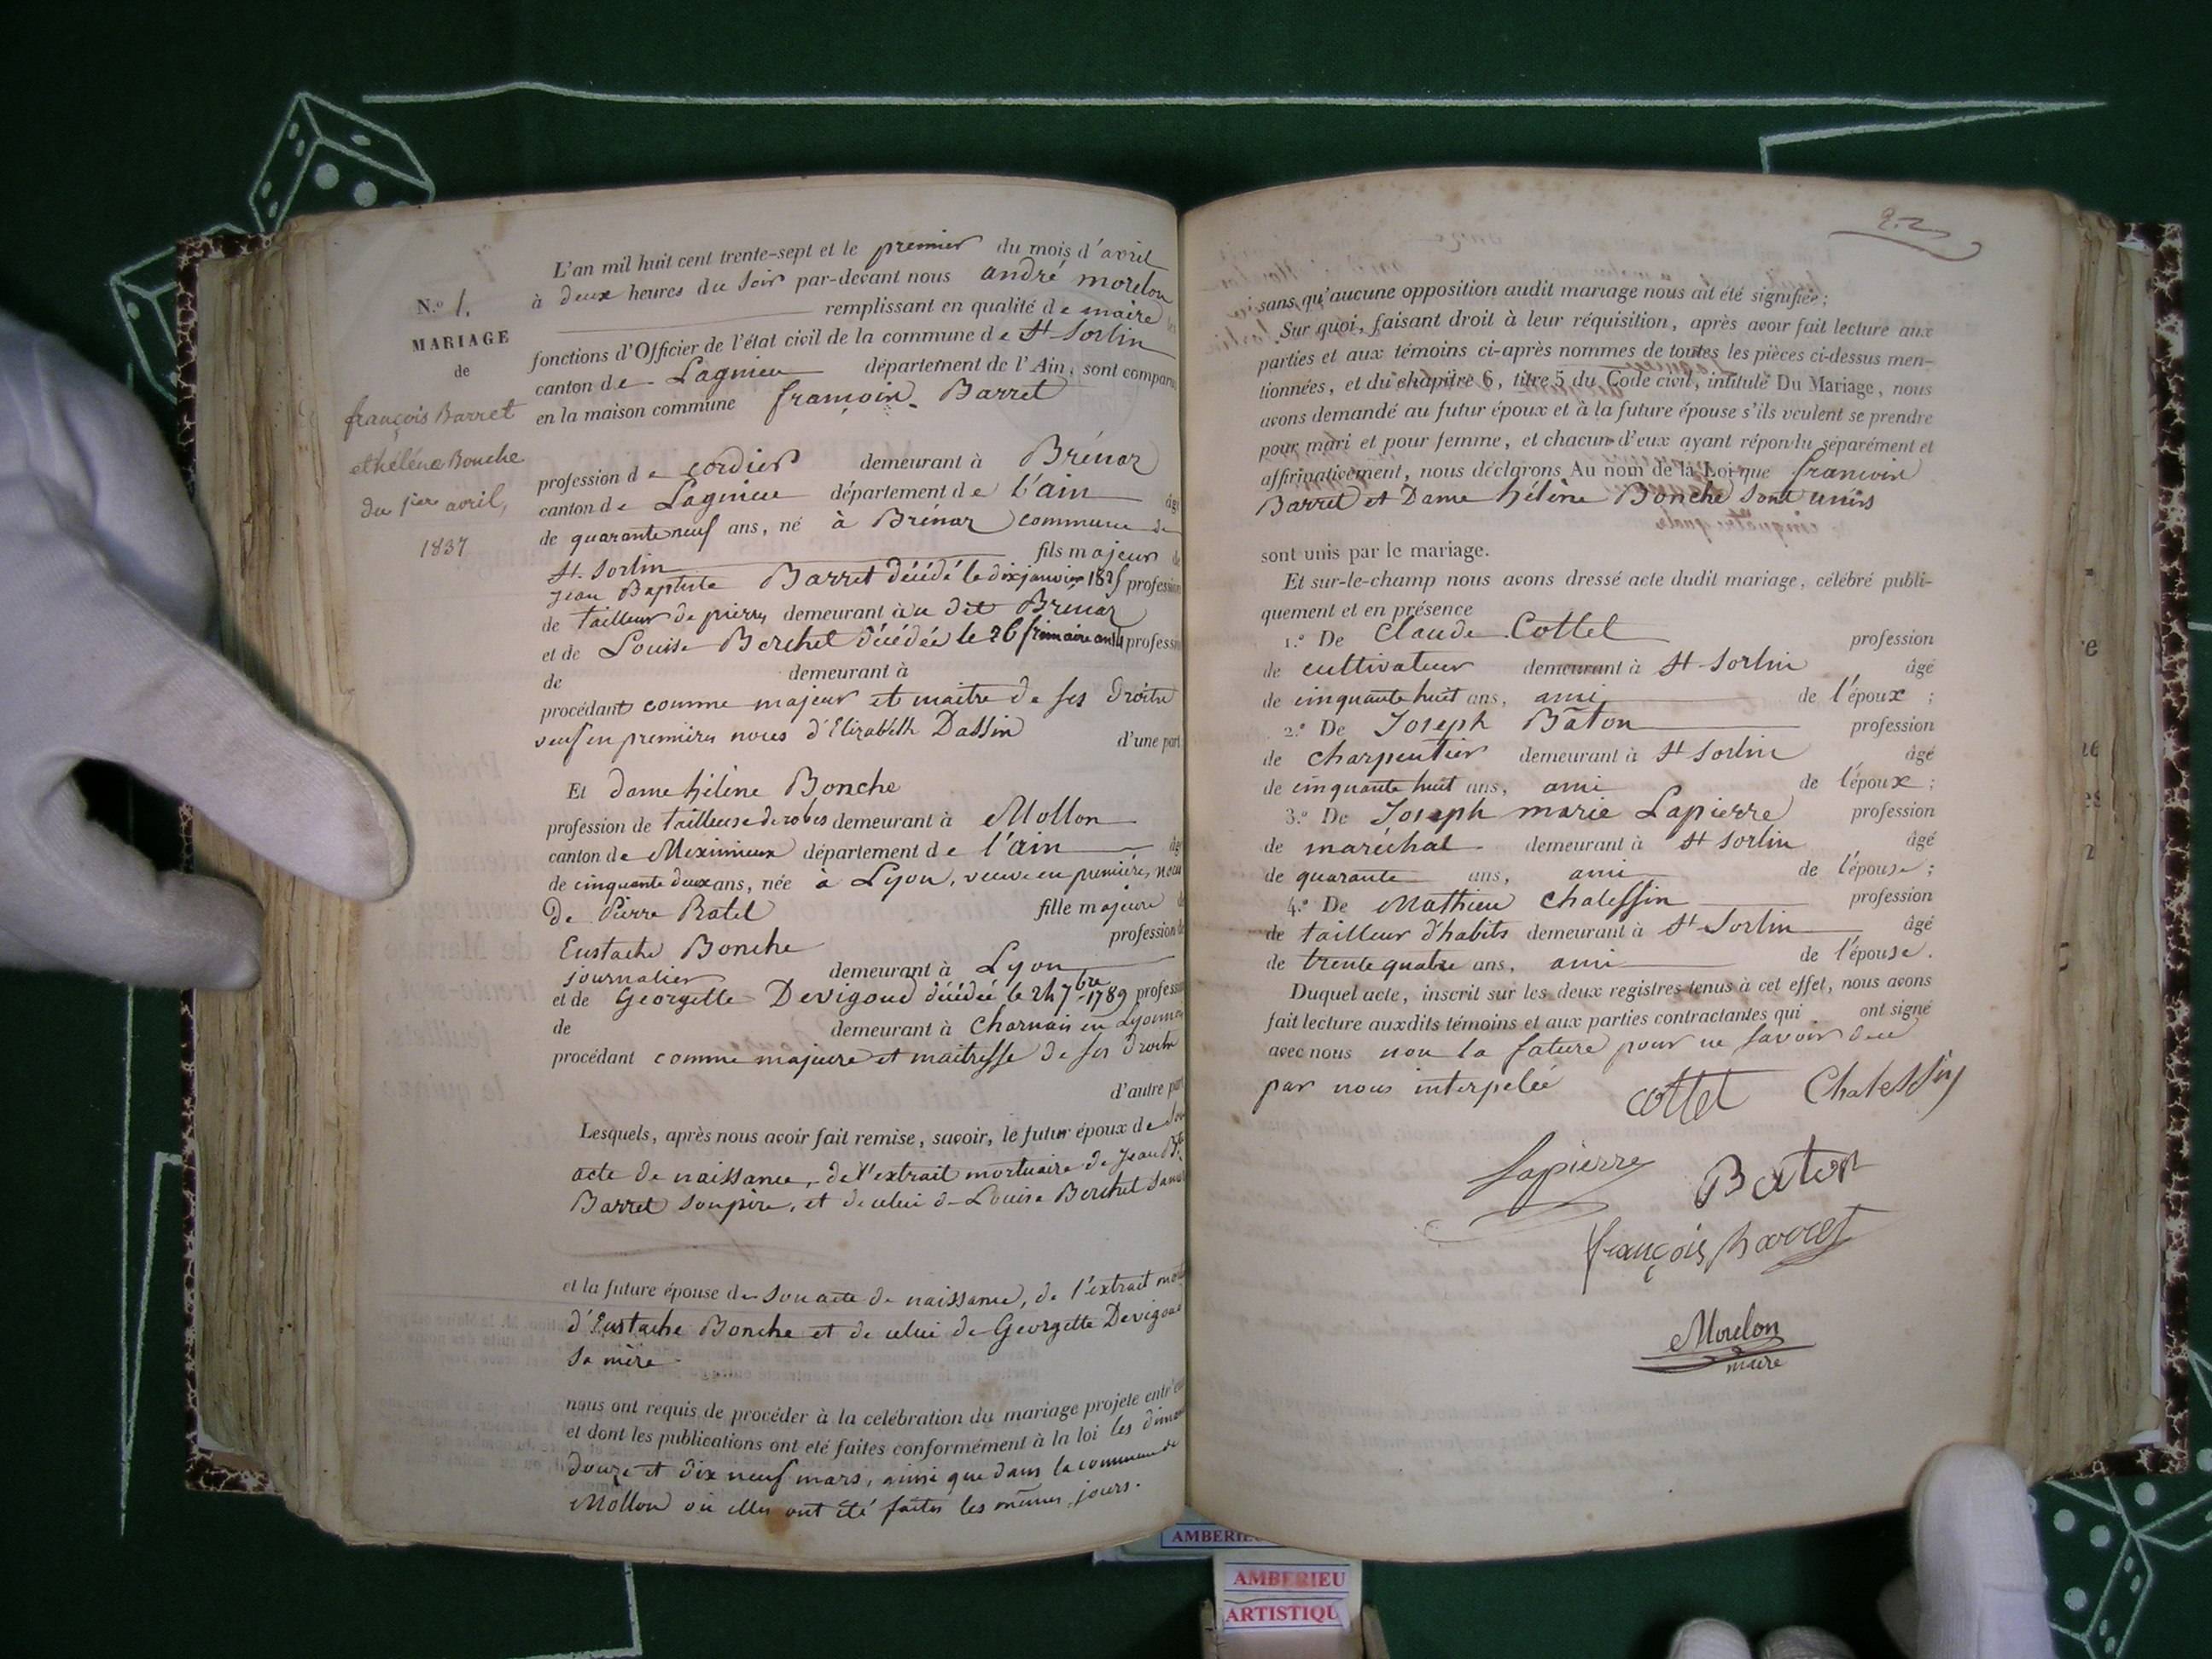 N.o 1.
MARIAGE
de
françois Barret
et hélène Bonche
du 1er avril,
1837
L'an mil huit cent trente-sept et le premier du mois d'avril
à deux heures du soir par-devant nous andré morelon
remplissant en qualité de maire les
fonctions d'Officier de l'état civil de la commune de St Sorlin
canton de Lagnieu département de l'Ain, sont comparus
en la maison commune françois Barret
profession de cordier demeurant à Brénaz
canton de Lagnieu département de l'ain âgé
de quarante neuf ans, né à Brénaz commune de
St. Sorlin fils majeur de
Jean Baptiste Barret décédé le dix janvier 1825 profession
de tailleur de pierres demeurant au dit Brénaz
et de Louise Berchet décédée le 26 frimaire an 14 profession
de demeurant à
procédant comme majeur et maitre de ses droits
veuf en premières noces d'Elizabeth Dassin d'une part
Et dame hélène Bonche
profession de tailleuse de robes demeurant à Mollon
canton de Meximieux département de l'ain âgé
de cinquante deux ans, née à Lyon, veuve en premières noces
de Pierre Ratel fille majeure de
Eustache Bonche profession de
journalier demeurant à Lyon
et de Georgette Devigoud décédée le 24 7bre 1789 profession
de demeurant à Charnais en Lyonnais
procédant comme majeure et maitresse de ses droits
d'autre part
Lesquels, après nous avoir fait remise, savoir, le futur époux de son
acte de naissance, de l'extrait mortuaire de Jean Bte
Barret son père, et de celui de Louise Berchet sa mère
et la future épouse de son acte de naissance, de l'extrait mort
d'Eustache Bonche et de celui de Georgette Devigoud
sa mère
nous ont requis de procéder à la celébration du mariage projete entr'eux
et dont les publications ont eté faites conformément à la loi les diman
douze et dix neuf mars, ainsi que dans la commune de
Mollon où elles ont été faites les mêmes jours.
22
sans qu'aucune opposition audit mariage nous ait été signifiée;
Sur quoi, faisant droit à leur réquisition, après avoir fait lecture aux
parties et aux témoins ci-après nommes de toutes les pièces ci-dessus men-
tionnées, et du chapitre 6, titre 5 du Code civil, intitulé Du Mariage, nous
avons demandé au futur époux et à la future épouse s'ils veulent se prendre
pour mari et pour femme, et chacun d'eux ayant répondu séparément et
affirmativement, nous déclarons Au nom de la Loi que francois
Barret et Dame hélène Bonche sont unis
sont unis par le mariage.
Et sur-le-champ nous avons dressé acte dudit mariage, célébré publi-
quement et en présence
1.o De Claude Cottet profession
de cultivateur demeurant à St Sorlin âgé
de cinquante huit ans, ami de l'époux ;
2.o De Joseph Bâton profession
de charpentier demeurant à St Sorlin âgé
de cinquante huit ans, ami de l'époux ;
3.o De Joseph marie Lapierre profession
de maréchal demeurant à St Sorlin âgé
de quarante ans, ami de l'épouse ;
4.o De Mathieu Chalessin profession
de tailleur d'habits demeurant à St Sorlin âgé
de trente quatre ans, ami de l'épouse.
Duquel acte, inscrit sur les deux registres tenus à cet effet, nous avons
fait lecture auxdits témoins et aux parties contractantes qui ont signé
avec nous non la future pour ne savoir de ce
par nous interpelée
Cottet Chalessin
Lapierre Baton
françois barret
Morelon
maire
AMBERIEU
AMBERIEU
ARTISTIQU